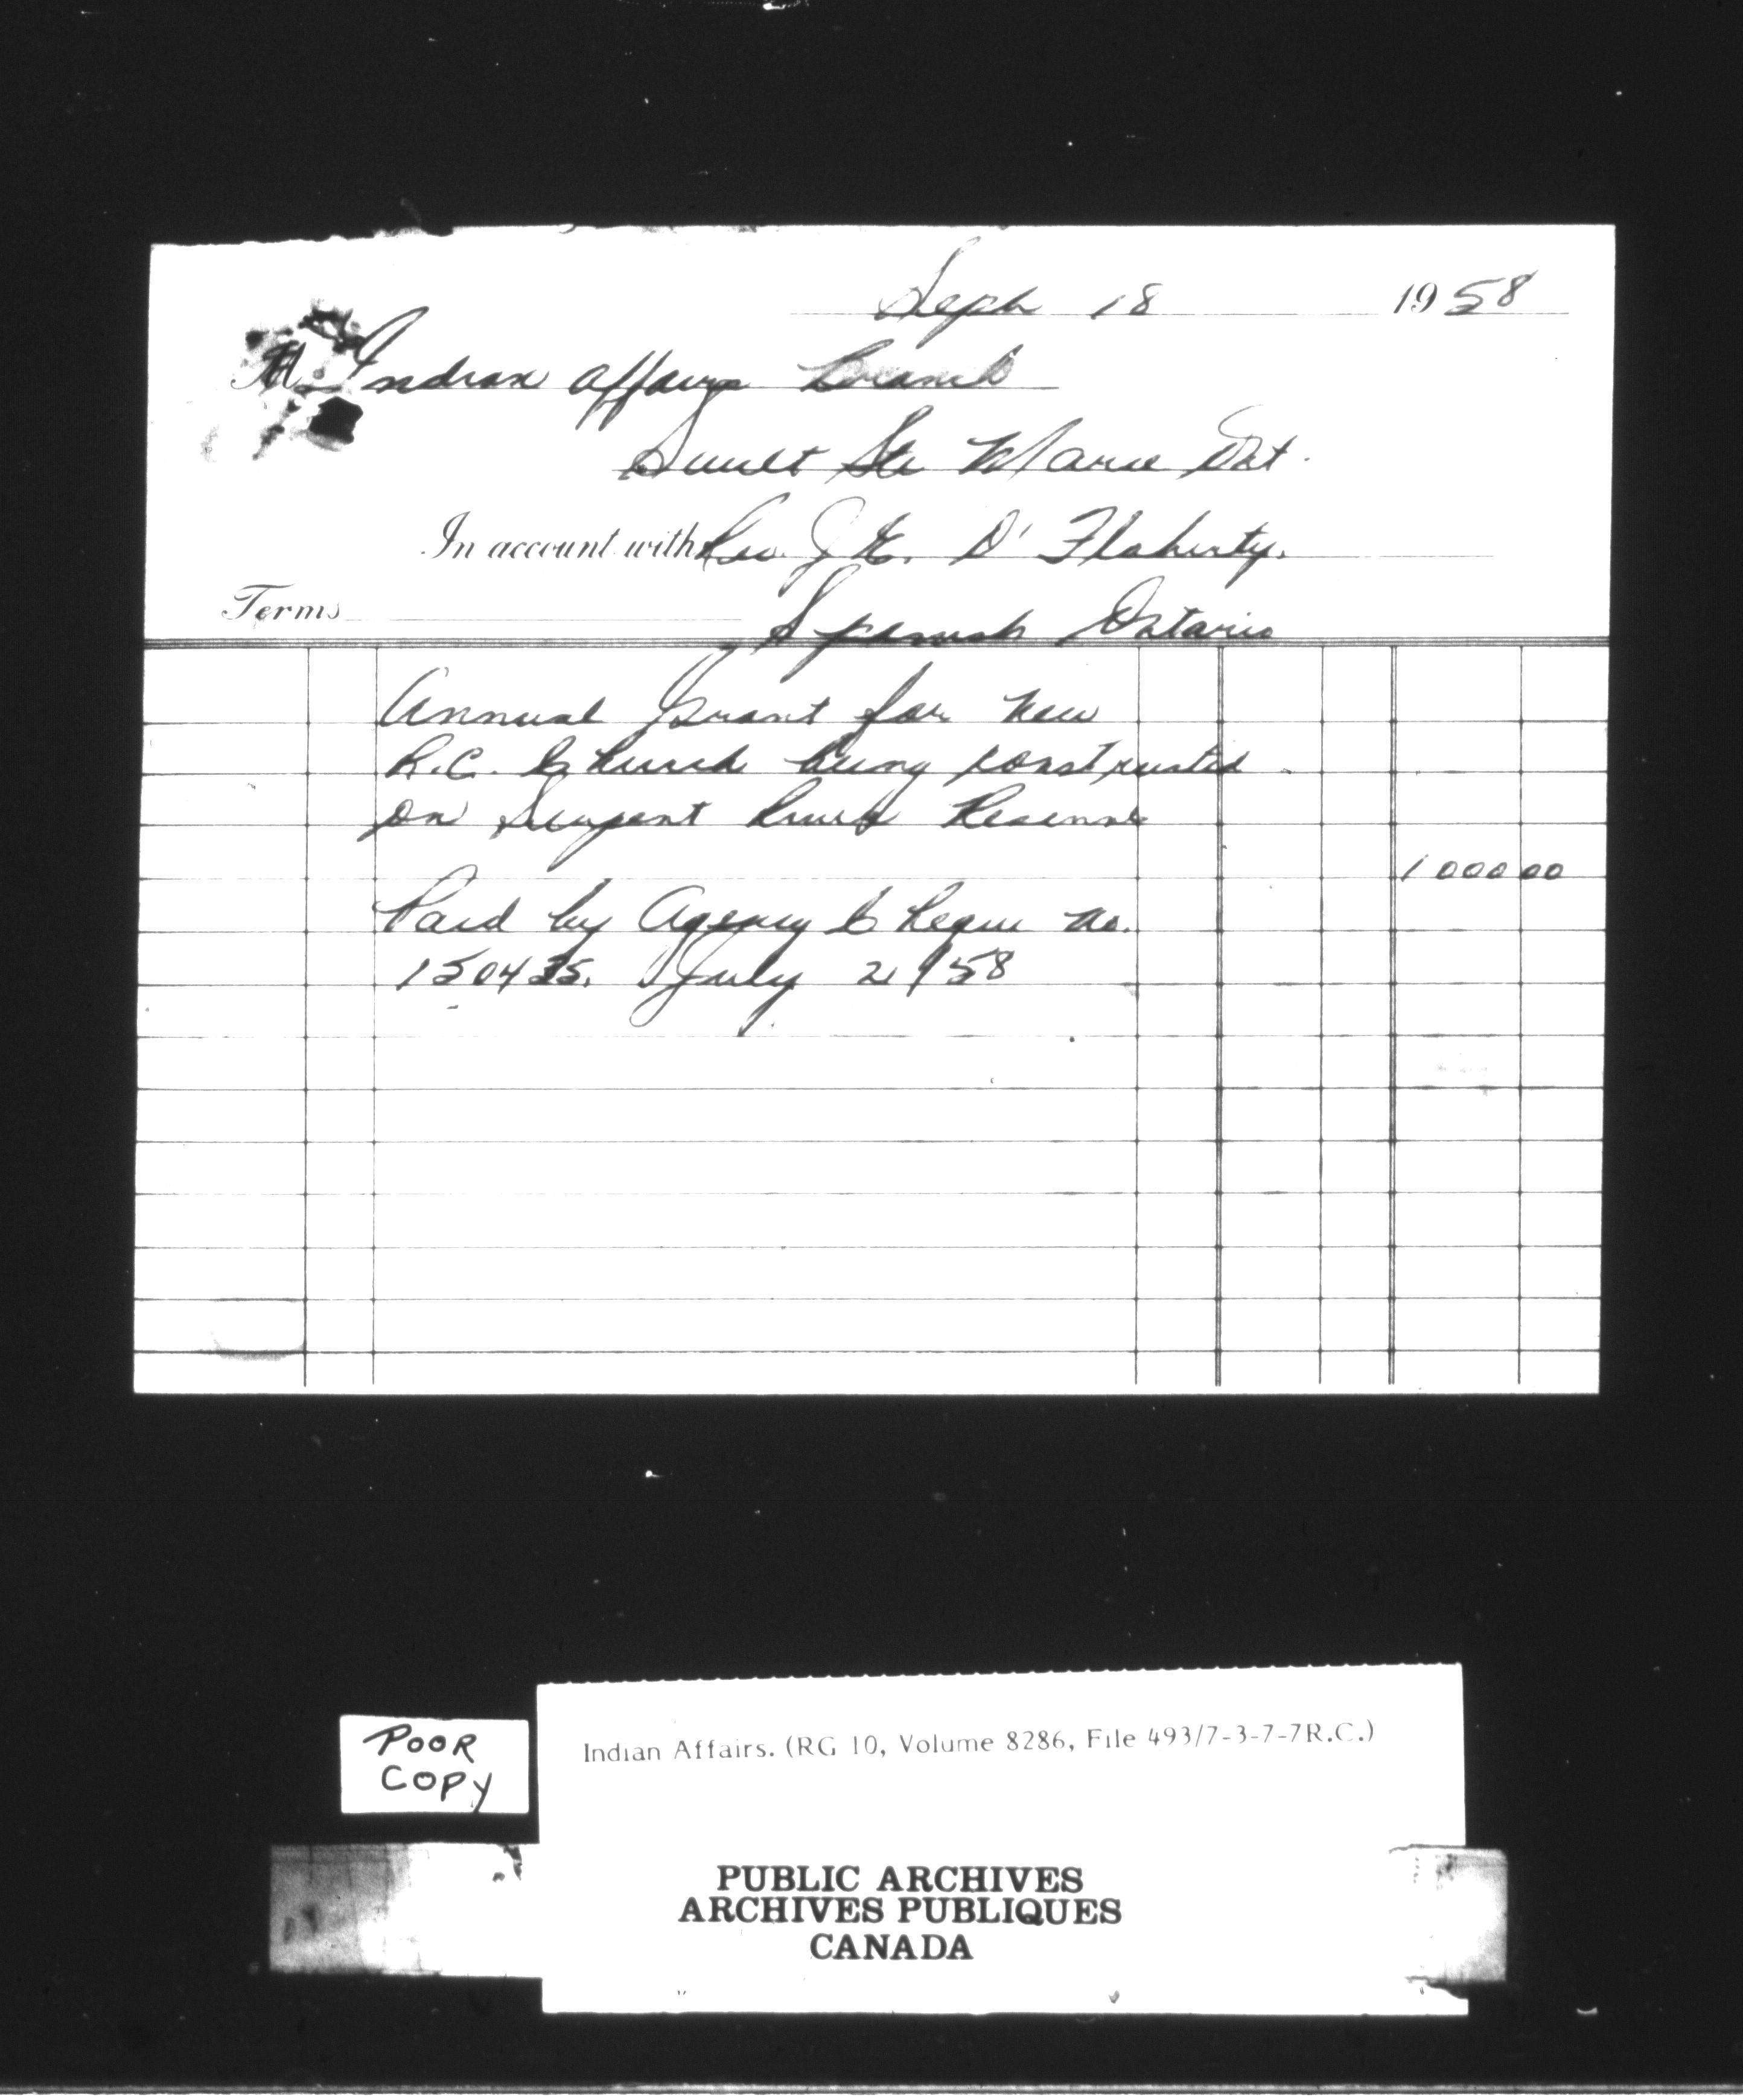 Sept 18 1958
M. Indian Affairs Branch
Sault Ste Marie Ont.
In account with Rev. J. E. O'Flaherty.
Terms Spanish Ontario
Annual Grant for New
R.C. Church being constructed
on Serpent River Reserve
1000 00
Paid by Agency Cheque No.
150435. July 2/58
POOR
COPY
Indian Affairs. (RG 10, Volume 8286, File 493/7-3-7-7R.C.)
PUBLIC ARCHIVES
ARCHIVES PUBLIQUES
CANADA